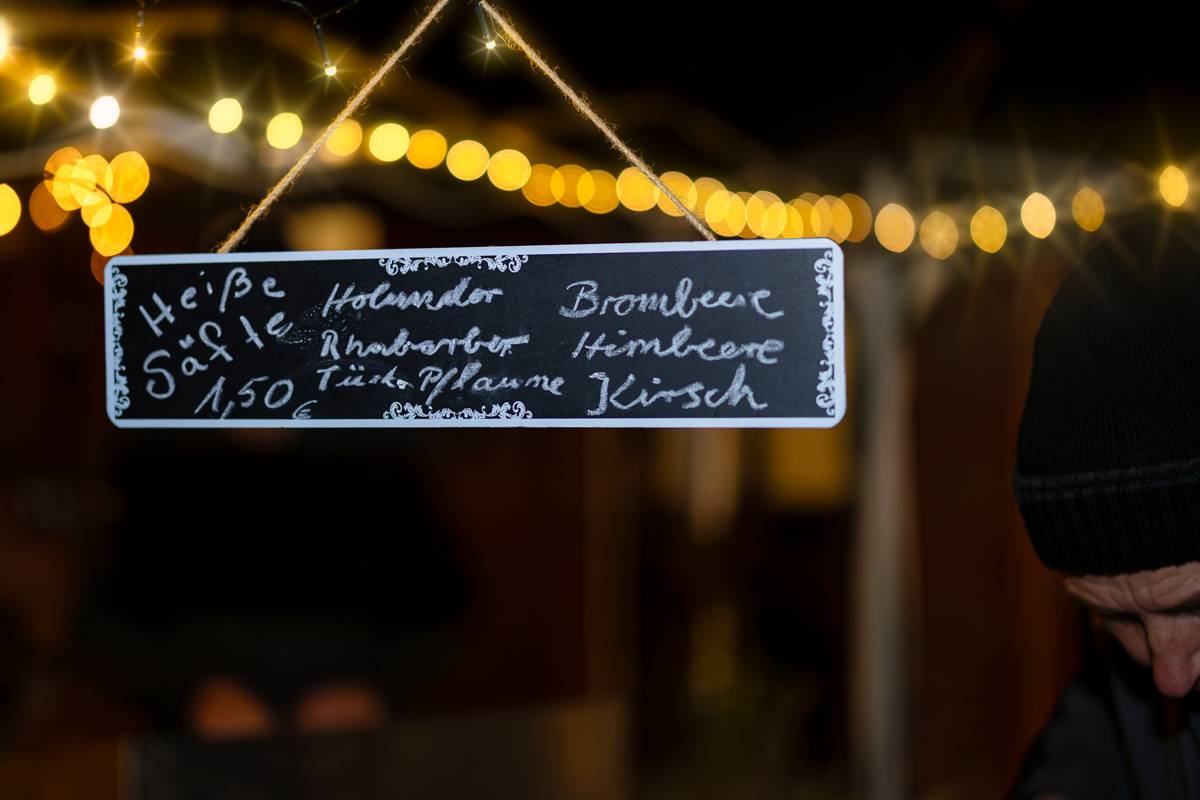 Heiße
Säfte
1,50 €
Holunder
Rhabarber
Türk. Pflaume
Brombeere
Himbeere
Kirsch